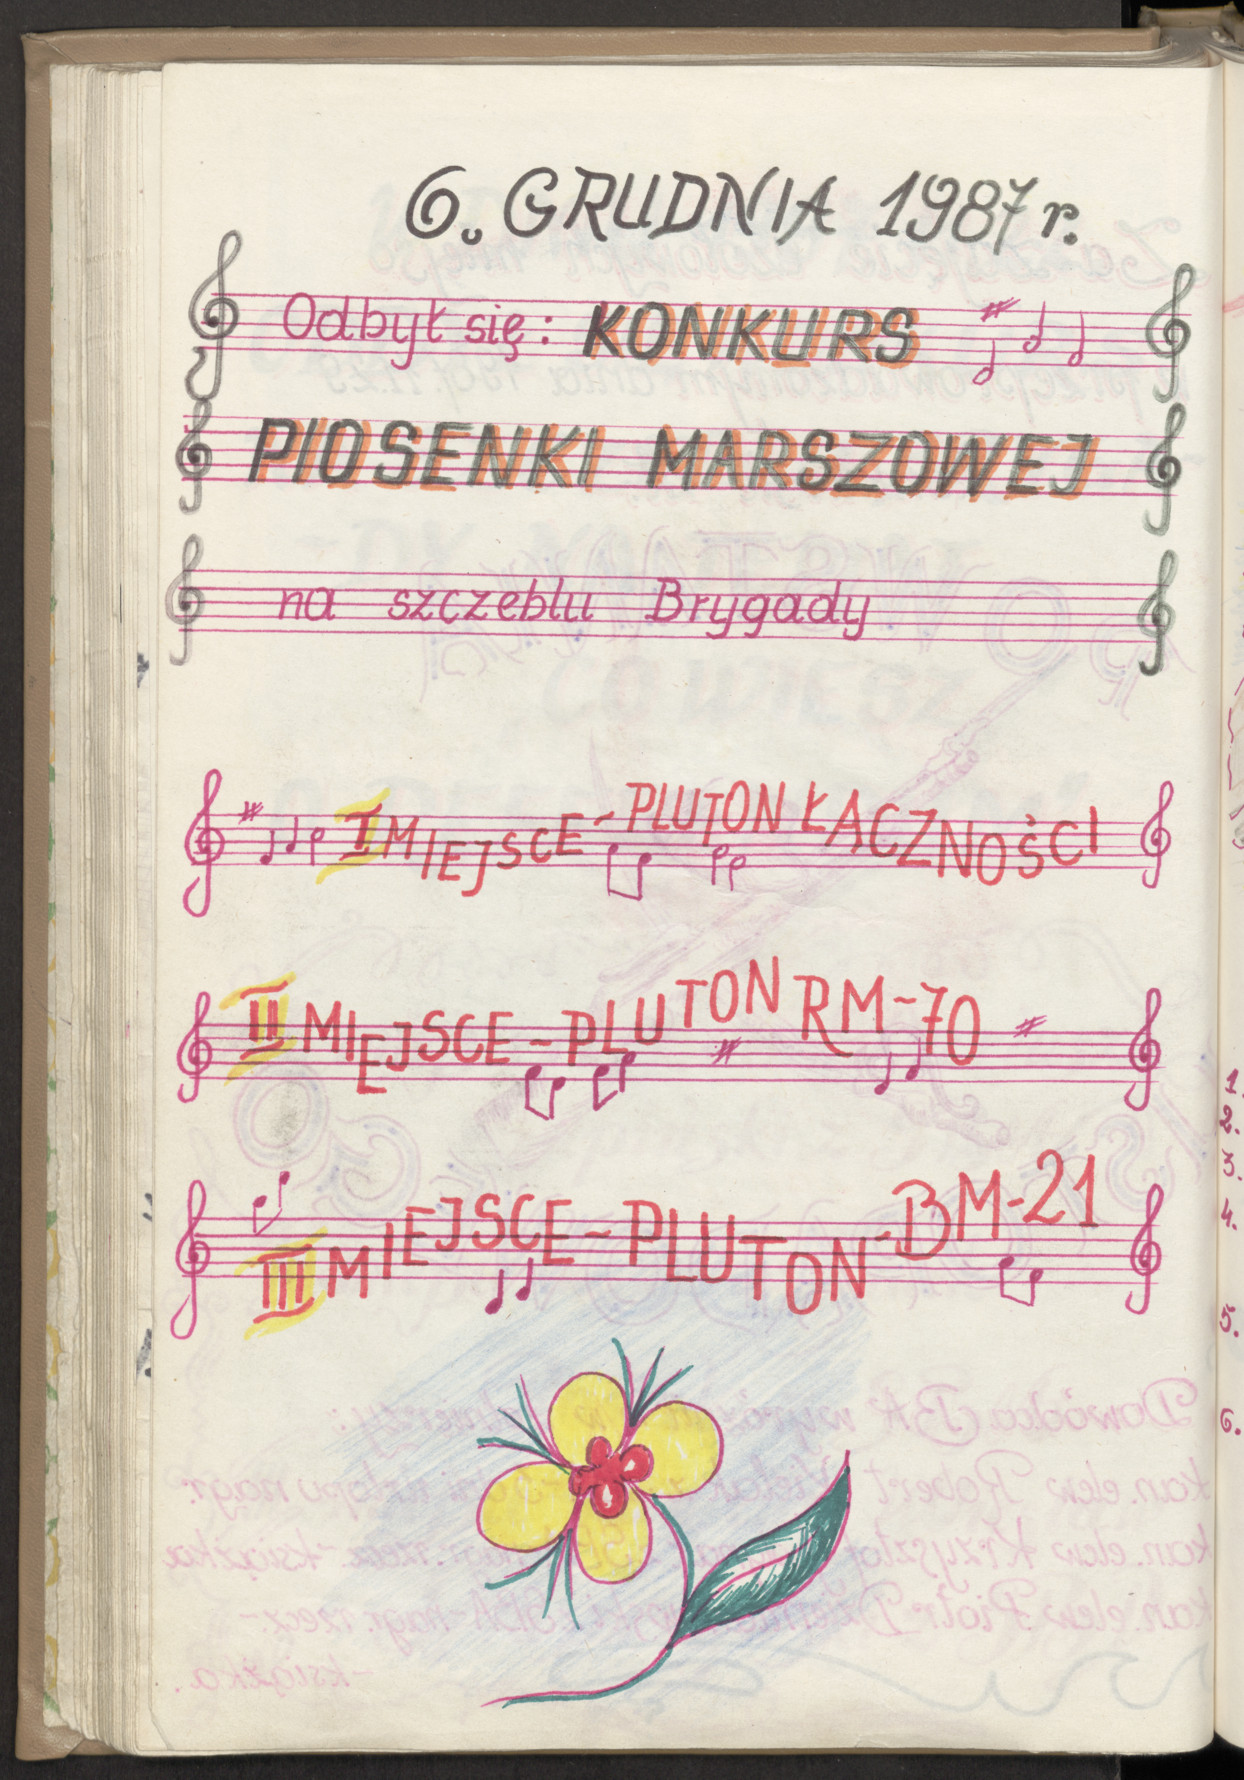 6. GRUDNIA 1987 r.
Odbył się: KONKURS
PIOSENKI MARSZOWEJ
na szczeblu Brygady
I MIEJSCE - PLUTON ŁACZNOŚCI
II MIEJSCE - PLUTON RM-70
III MIEJSCE - PLUTON - BM-21
1.
2.
3.
4.
5.
6.